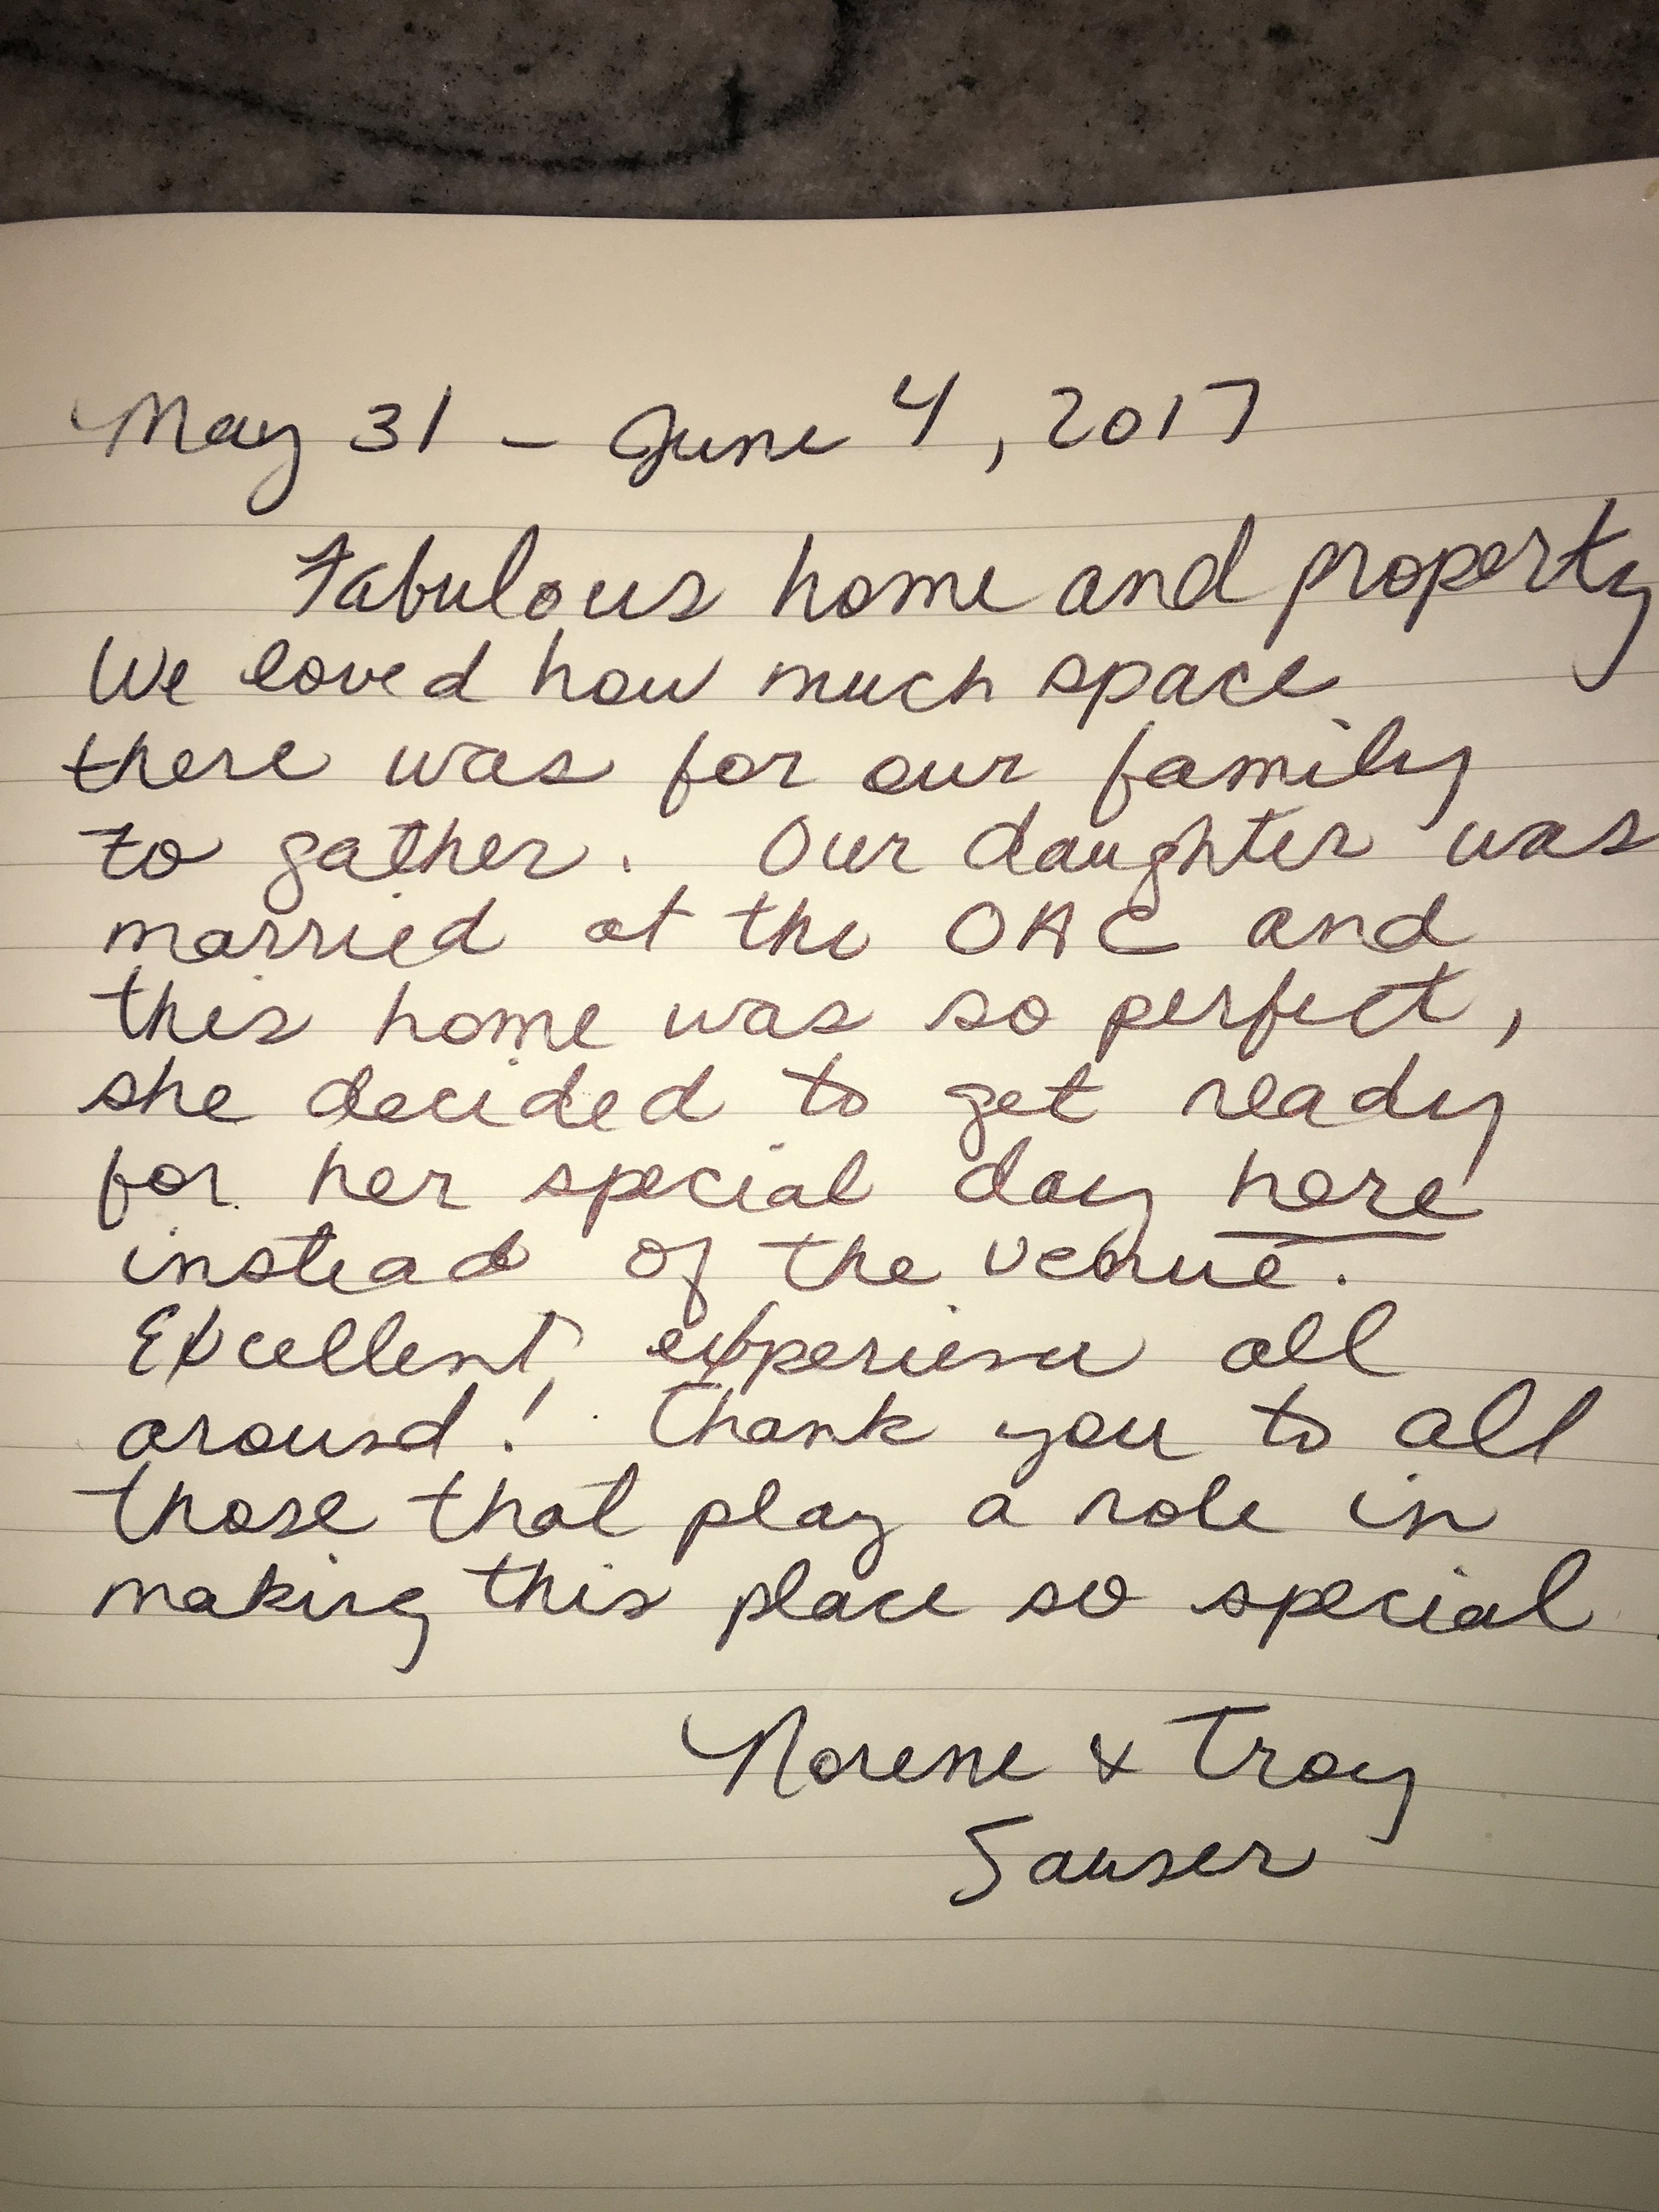 May 31 - June 4, 2017
Fabulous home and property
We loved how much space
there was for our family
to gather. Our daughter was
married at the OAC and
this home was so perfect,
she decided to get ready
for her special day here
instead of the venue.
Excellent experience all
around! Thank you to all
those that play a role in
making this place so special.
Norene & Troy
Sauser